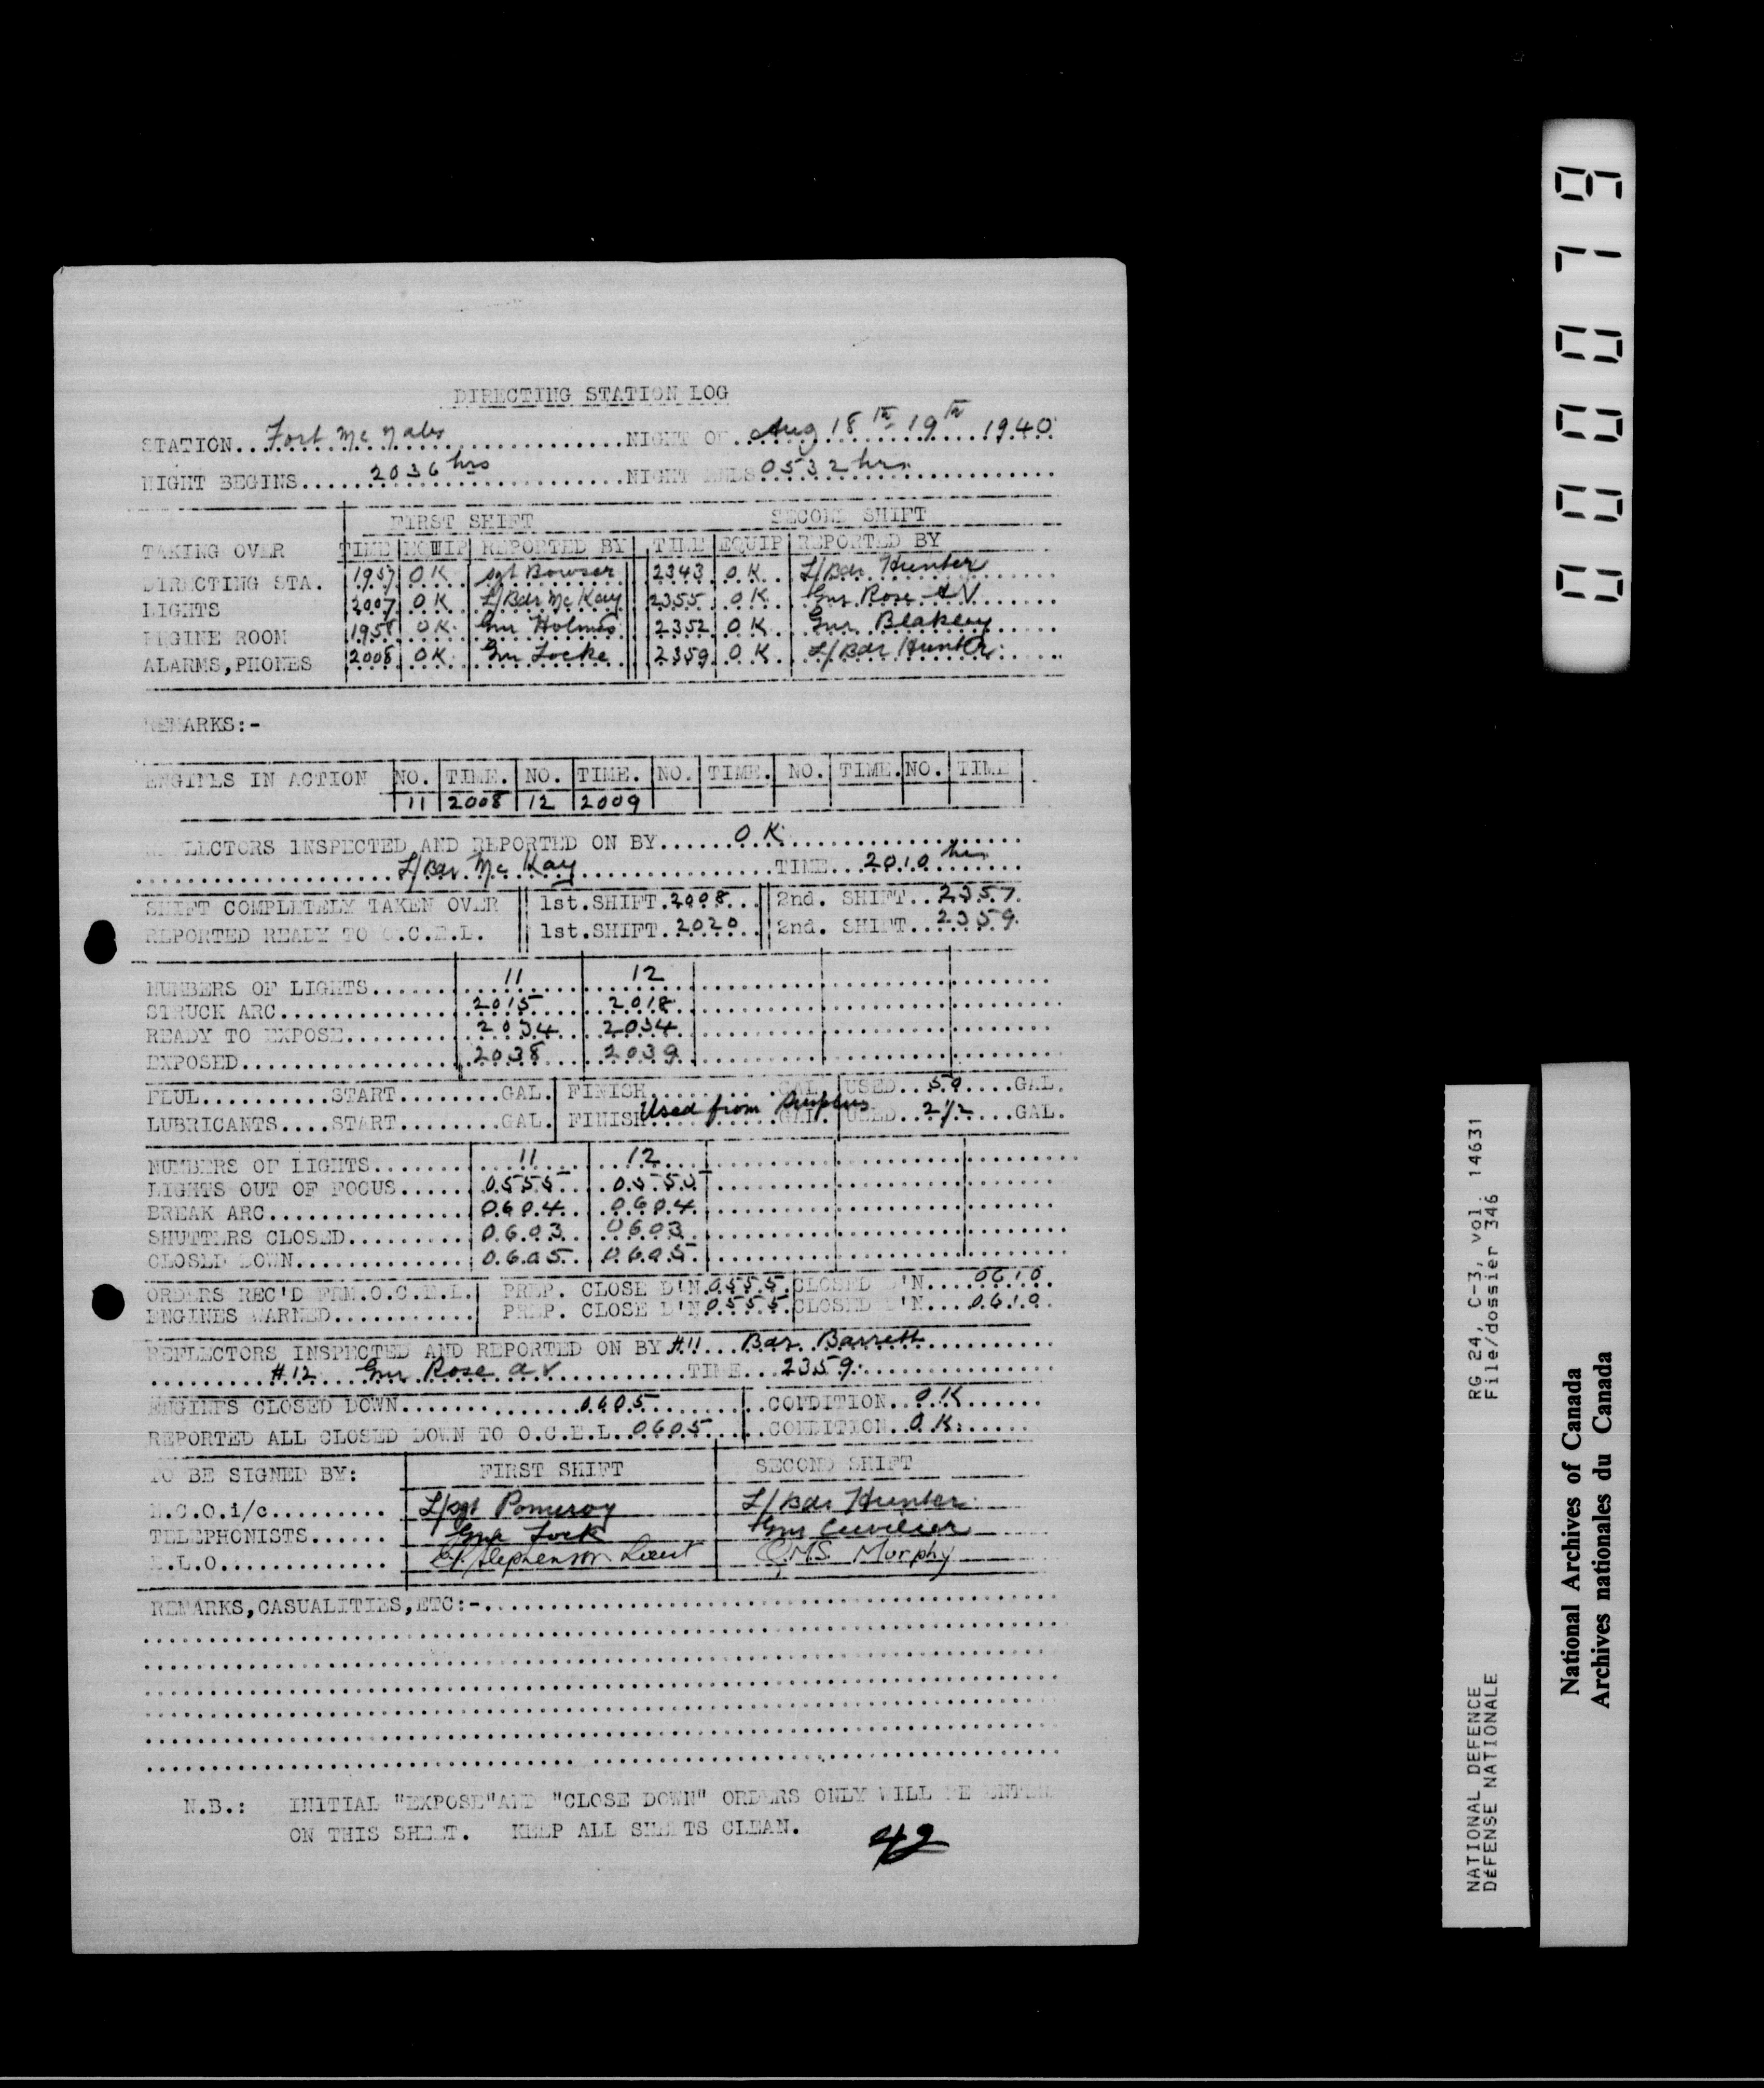 DIRECTING STATION LOG
STATION...Fort Mc Nabs...NIGHT OF...Aug 18th-19th 1940
NIGHT BEGINS.....2036 hrs.....NIGHT ENDS 0532 hrs
FIRST SHIFT SECOND SHIFT
TAKING OVER TIME EQUIP REPORTED BY TIME EQUIP REPORTED BY
DIRECTING STA. 1957 OK Sgt Bowser 2343 OK L/Bdr Hunter
LIGHTS 2007 OK L/Bdr McKay 2355 OK Gnr Rose A V
ENGINE ROOM 1958 OK Gnr Holmes 2352 OK Gnr Blakley
ALARMS,PHONES 2008 OK Gnr Locke 2359 OK L/Bdr Hunter
REMARKS:-
ENGINES IN ACTION NO. TIME. NO. TIME. NO. TIME. NO. TIME. NO. TIME
11 2008 12 2009
REFLECTORS INSPECTED AND REPORTED ON BY......OK
L/Bdr. Mc Kay TIME...2010 hrs
SHIFT COMPLETELY TAKEN OVER 1st.SHIFT.2008... 2nd. SHIFT..2357.
REPORTED READY TO O.C.E.L. 1st.SHIFT.2020... 2nd. SHIFT..2359.
NUMBERS OF LIGHTS...... 11 12
STRUCK ARC............ 2015 2018
READY TO EXPOSE........ 2034 2034
EXPOSED............... 2038 2039
FUEL..........START........GAL. FINISH..........GAL. USED..50....GAL.
Used from Surplus
LUBRICANTS....START........GAL. FINISH..........GAL. USED..2 1/2...GAL.
NUMBERS OF LIGHTS....... 11 12
LIGHTS OUT OF FOCUS..... 0555 0555
BREAK ARC............... 0604 0604
SHUTTERS CLOSED......... 0603 0603
CLOSED DOWN............. 0605 0605
ORDERS REC'D FRM.O.C.E.L. PREP. CLOSE D'N.0555.CLOSED D'N....0610.
ENGINES WARNED........... PREP. CLOSE D'N.0555.CLOSED D'N...0610.
REFLECTORS INSPECTED AND REPORTED ON BY #11...Bdr. Barrett
#12 Gnr Rose A V TIME...2359.
ENGINES CLOSED DOWN.............0605 CONDITION..OK
REPORTED ALL CLOSED DOWN TO O.C.E.L.0605 CONDITION..O.K.
TO BE SIGNED BY: FIRST SHIFT SECOND SHIFT
N.C.O.i/c......... L/Sgt Pomeroy L/Bdr Hunter
TELEPHONISTS...... Gnr Lock Gnr Cuvilier
E.L.O............. Stephenson Lieut QMS Murphy
REMARKS,CASUALITIES,ETC:-
N.B.: INITIAL "EXPOSE"AND "CLOSE DOWN" ORDERS ONLY WILL BE ENTER
ON THIS SHEET. KEEP ALL SHEETS CLEAN.
42
00000719
RG 24, C-3, vol. 14631
File/dossier 346
NATIONAL DEFENCE
DÉFENSE NATIONALE
National Archives of Canada
Archives nationales du Canada